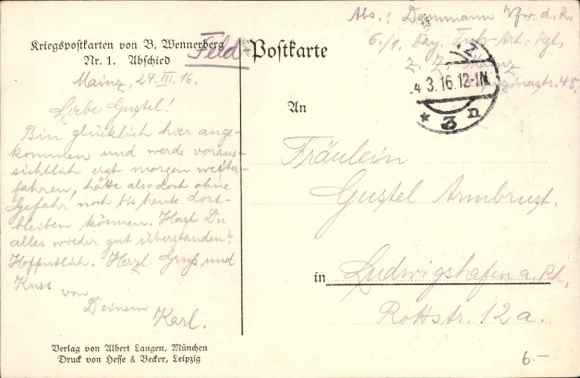 Kriegspostkarten von B. Wennerberg
Nr. 1. Abschied
Mainz, 24. III. 16.
Liebe Gustel!
Bin glücklich hier ange-
kommen und werde voraus-
sichtlich erst morgen weiter-
fahren, hätte also dort ohne
Gefahr noch bis heute dort-
bleiben können. Hast Du
alles wieder gut überstanden?
Hoffentlich. Herzl. Gruß und
Kuss von
Deinem
Karl.
Verlag von Albert Langen, München
Druck von Hesse & Becker, Leipzig
Feld-Postkarte
Abs.: Dammann d. R.
6./1. Bay. Fuß-Art. Rgt.
z. Z.
48.
3.16.12-1N.
* 3 n
An
Fräulein
Gustel Armbrust.
in Ludwigshafen a. Rh.
Rottstr. 12 a.
6.-